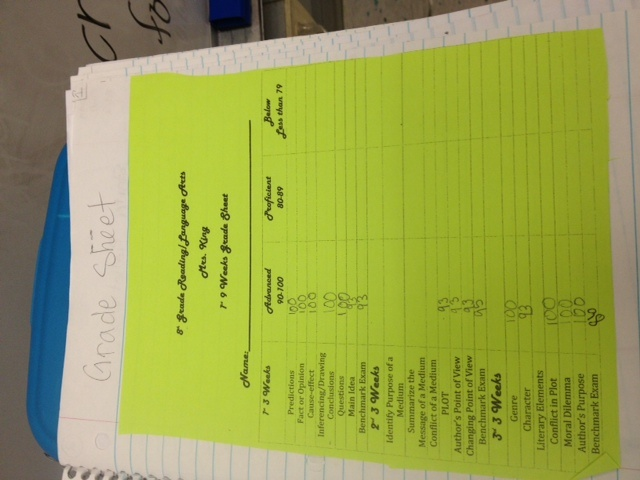 Grade Sheet
8th Grade Reading/Language Arts
Mrs. King
1st 9 Weeks Grade Sheet
Name:
1st 3 Weeks Advanced Proficient Below
90-100 80-89 Less than 79
Predictions 100
Fact or Opinion 100
Cause-effect 100
Inferencing/Drawing
Conclusions 100
Questions 100
Main Idea 93
Benchmark Exam 93
2nd 3 Weeks
Identify Purpose of a
Medium
Summarize the
Message of a Medium
Conflict of a Medium
PLOT 93
Author's Point of View 93
Changing Point of View 93
Benchmark Exam 95
3rd 3 Weeks
Genre 100
Character 93
Literary Elements
Conflict in Plot 100
Moral Dilemma 100
Author's Purpose 100
Benchmark Exam